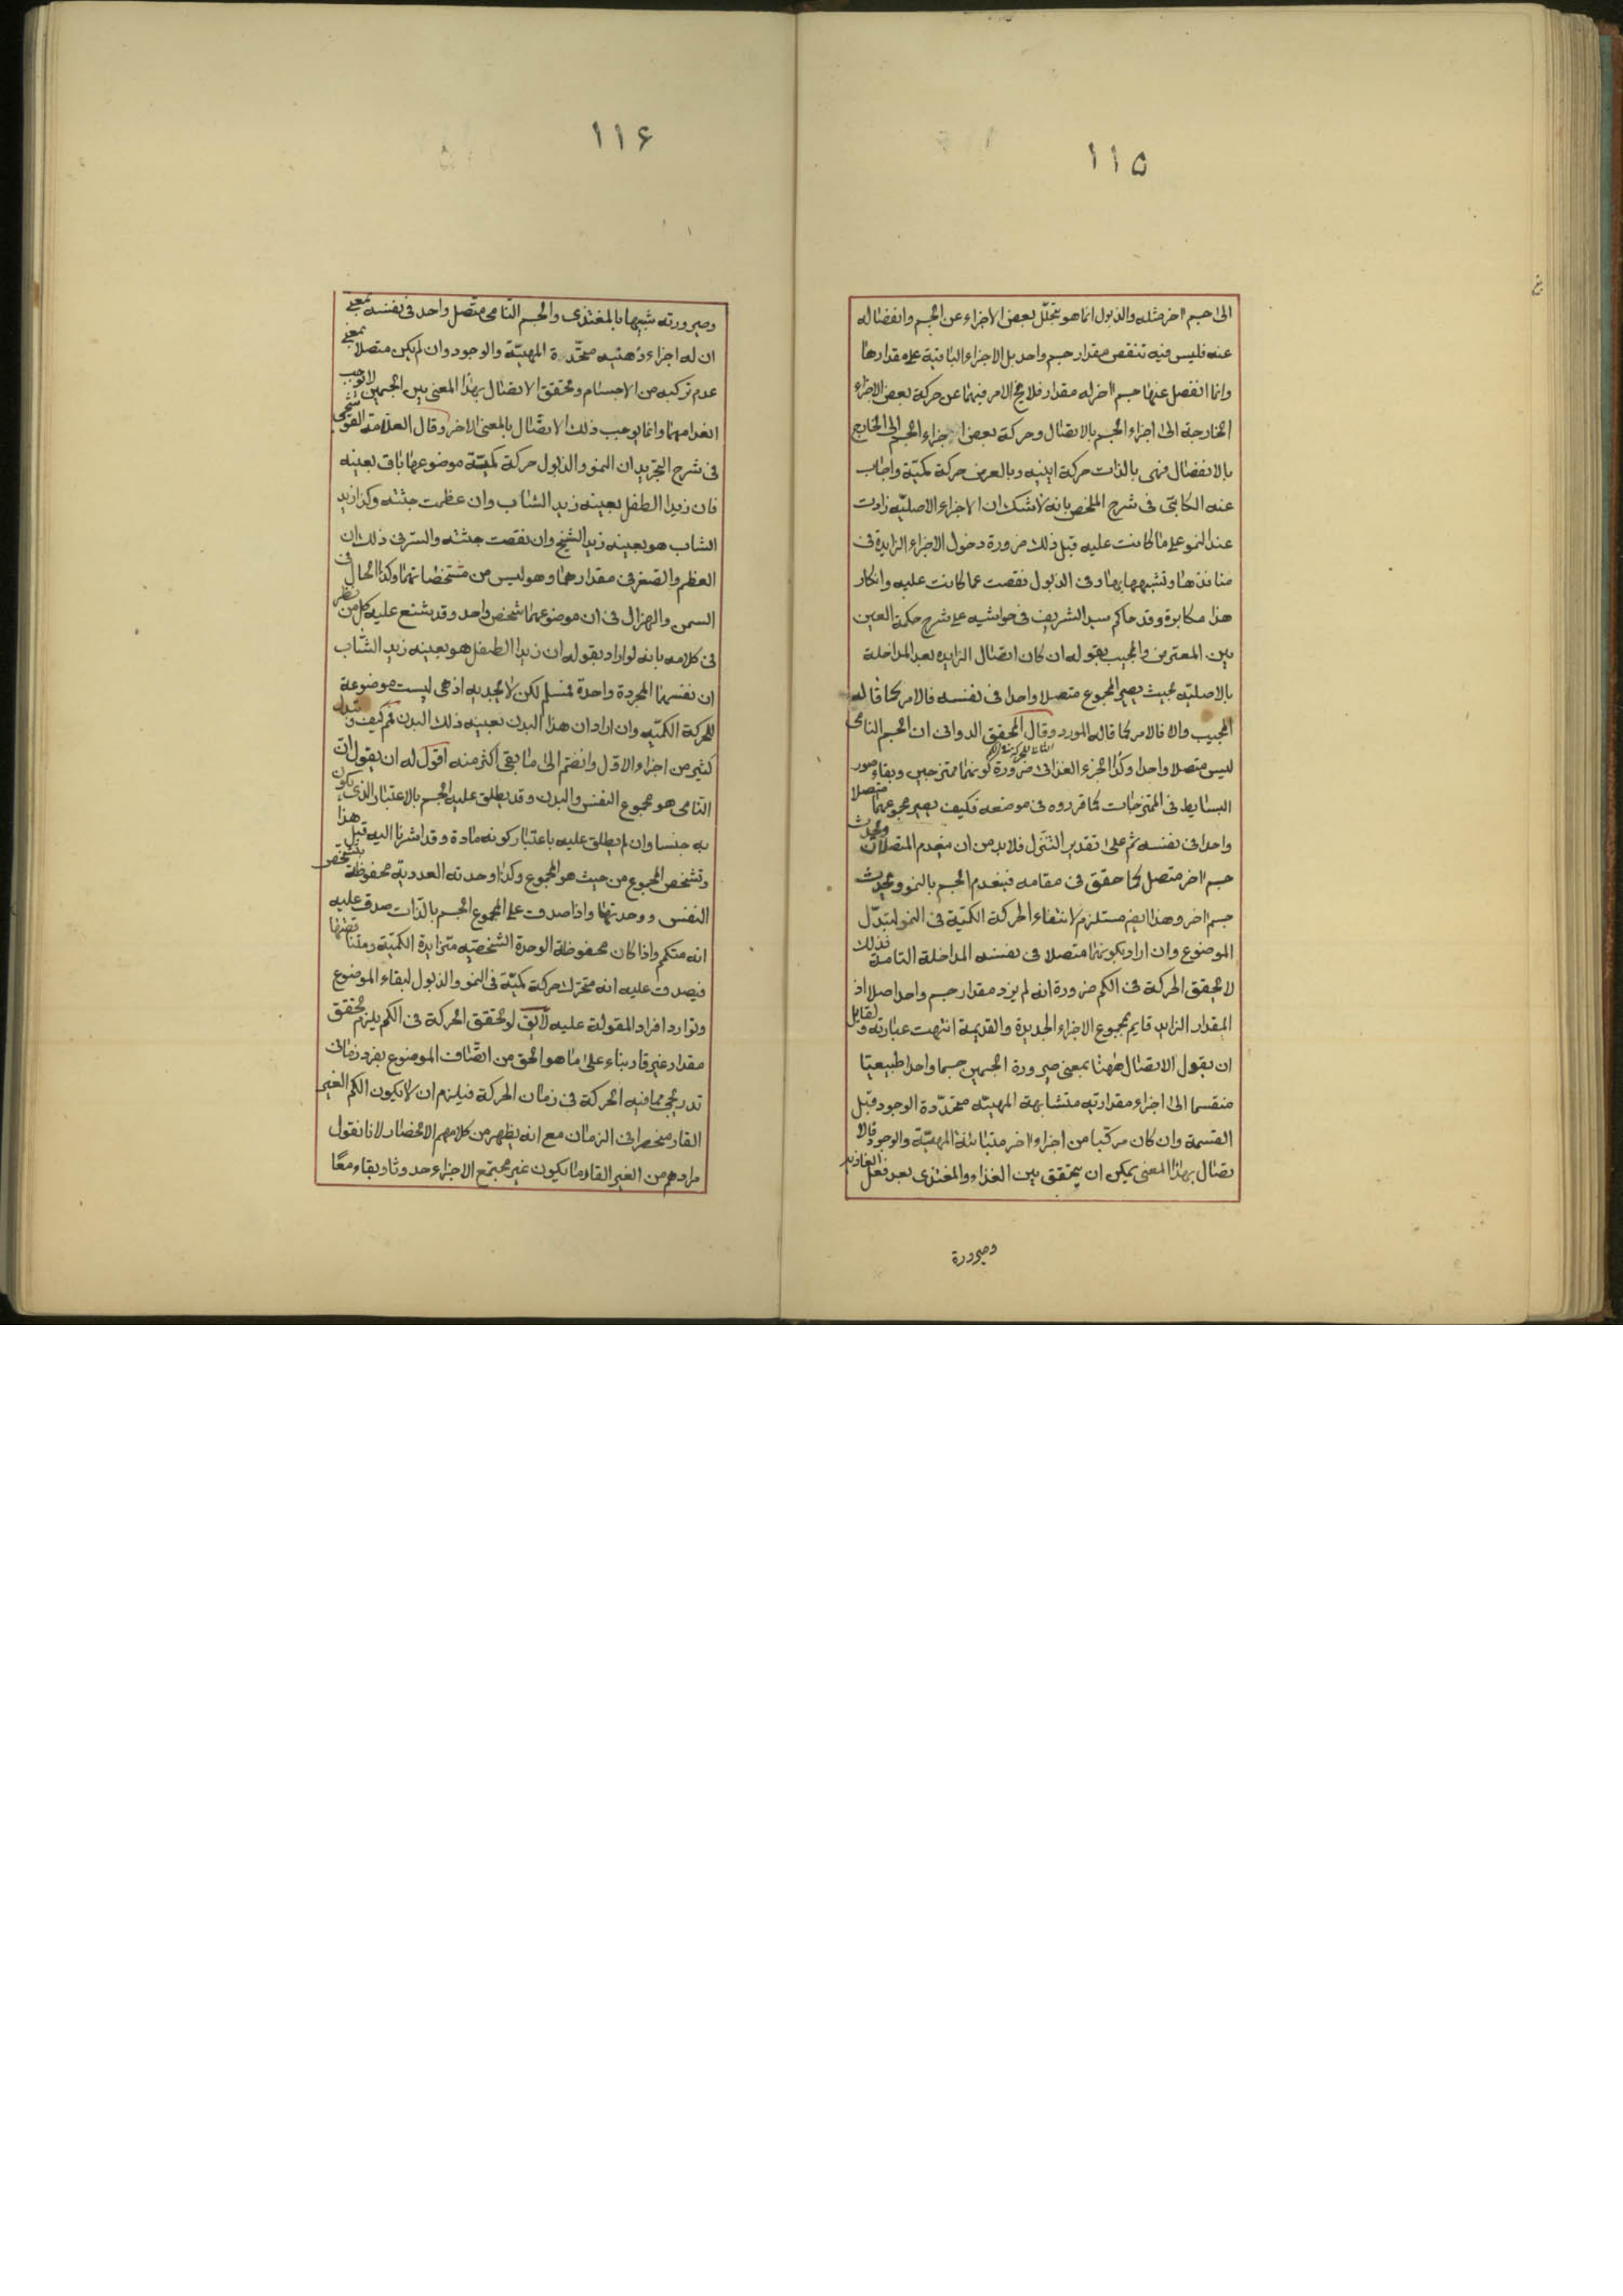 ١١٥
الى جسم اخر مثله والذبول انما هو بتحلل بعض الاجزاء عن الجسم وانفصاله
عنه فليس فيه تنقص مقدار جسم واحد بل الاجزاء الباقية على مقدارها
وانما انفصل عنها جسم اخر له مقدار فلا يخ الامر فيهما عن حركة بعض الاجزاء
الخارجة الى اجزاء الجسم بالاتصال وحركة بعض اجزاء الجسم الى الخارج
بالانفصال فهى بالذات حركة اينيه وبالعرض حركة كميّة واجاب
عنه الكاتبى فى شرح الملخص بانه لا شك ان الاجزاء الاصليّه زادت
عند النمو على ما كانت عليه قبل ذلك ضرورة دخول الاجزاء الزايدة فى
منافذها وتشبهها بها وفى الذبول نقصت عما كانت عليه وانكار
هذا مكابرة وقد حاكم سيد الشريف فى حواشيه على شرح حكمة العين
بين المعترض والمجيب بقوله ان كان اتصال الزايدة بعد المداخلة
بالاصليّه بحيث يصير المجموع متصلا واحدا فى نفسه فالامر كما قاله
المجيب والا فالامر كما قاله المورد وقال المحقق الدوانى ان الجسم النامى
ليس متصلا واحدا وكذا الجزء الغذائى ضرورة كونهما ممتزجين وبقاء صور
البسايط فى الممتزجات كما قرروه فى موضعه فكيف يصير مجموعهما متصلا
واحدا فى نفسه ثم على تقدير التنزل فلا بد من ان ينعدم المتصلان ويحدث
جسم اخر متصل كما حقق فى مقامه فينعدم الجسم بالنمو ويحدث
جسم اخر وهذا ايض مستلزم لانتفاء الحركة الكميّة فى النمو لتبدّل
الموضوع وان اراد بكونهما متصلا فى نفسه المداخلة التامة فذلك
لا يحقق الحركة فى الكم ضرورة انه لم يزد مقدار جسم واحد اصلا اذ
المقدار الزايد قايم بمجموع الاجزاء الجديدة والقديمة انتهت عبارته ولقايل
ان يقول الاتصال ههنا بمعنى صيرورة الجسمين جسما واحدا طبيعيا
منقسما الى اجزاء مقدارتيه متشابهة المهيته متحدّدة الوجود قبل
القسمة وان كان مركبا من اجزاء اخر متباينة المهيّة والوجود فالا
تصال بهذا المعنى يمكن ان يتحقق بين الغذاء والمغتذى بعد فعل الغاذية
وصيرورة
١١۶
وصيرورته شبيها بالمغتذى والجسم النّامى متّصل واحد فى نفسه بمعنى
ان له اجزاء ذهنيه متحّدة المهيّة والوجود وان لم يكن متصلا بمعنى
عدم تركبه من الاجسام وتحقق الاتصال بهذا المعنى بين الجسمين لا يوجب
انعدامهما وانما يوجب ذلك الاتّصال بالمعنى الاخر وقال العلامة القوشجى
فى شرح التجريد ان النمو والذبول حركة كميّة موضوعها باق بعينه
فان زيدا الطفل بعينه زيد الشاب وان عظمت جثته وكذا زيد
الشاب هو بعينه زيد الشيخ وان نقصت جثته والسرّ فى ذلك ان
العظم والصغر فى مقدارهما وهو ليس من مشخصاتهما وكذا الحال فى
السمن والهزال فى ان موضوعهما شخص واحد وقد يشنع عليه كل من نظر
فى كلامه بانه لو اراد بقوله ان زيدا الطفل هو بعينه زيد الشّاب
ان نفسهما المجردة واحدة فمسلم لكن لا يجديه اذ هى ليست موضوعة
للحركة الكميّه وان اراد ان هذا البدن بعينه ذلك البدن فم كيف و
كثير من اجزاء الاول وانضم الى ما بقى اكثر منه اقول له ان يقول ان
النّامى هو مجموع النفس والبدن وقد يطلق عليه الجسم بالاعتبار الذى يكون
به جنسا وان لم يطلق عليه باعتبار كونه مادة وقد اشرنا اليه قبل هذا
وتشخص المجموع من حيث هو المجموع وكذا وحدته العددية محفوظة بتشخص
النفس ووحدتها واذا صدق على المجموع الجسم بالذات صدق عليه
انه متكمم واذا كان محفوظة الوحدة الشخصيّه متزايدة الكميّة ومتناقضها
فيصدق عليه انه متحرك حركة كميّة فى النمو والذبول لبقاء الموضوع
وتوارد افراد المقولة عليه لا يق لو تحقق الحركة فى الكم يلزم تحقق
مقدار غير قار بناء على ما هو الحق من اتّصاف الموضوع بفرد زمانى
تدريجى مما فيه الحركة فى زمان الحركة فيلزم ان لا يكون الكم الغير
القار منحصرا فى الزمان مع انه يظهر من كلامهم الانحصار لانا نقول
مرادهم من الغير القار ما يكون غير مجتمع الاجزاء حدوثا وبقاء معًا